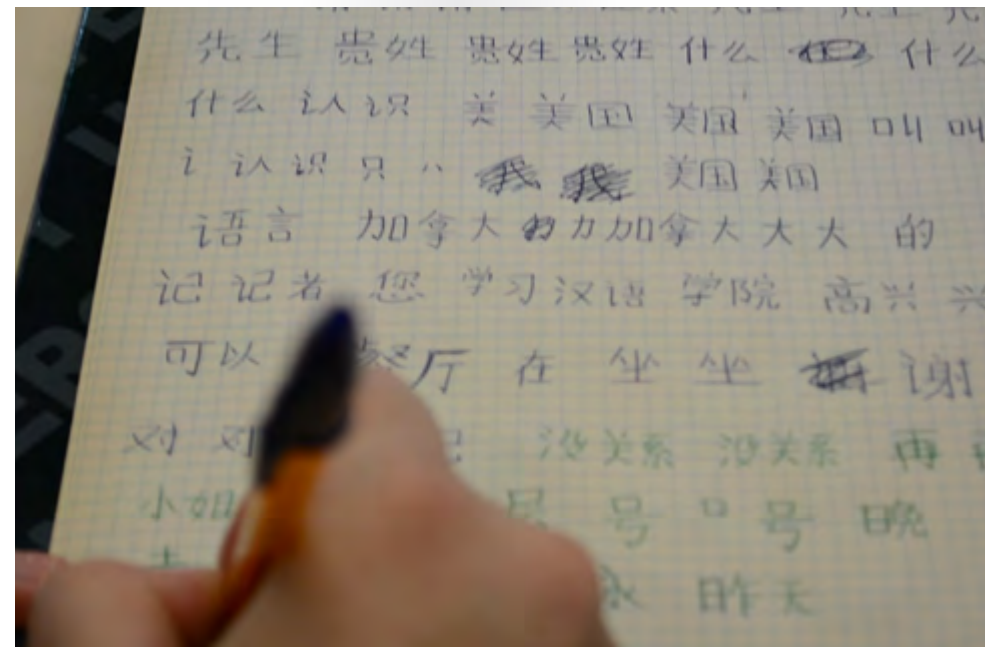 先生 贵姓 贵姓 贵姓 什么 什么
什么 认识 美 美国 美国 美国 叫 叫
讠 认识 只 八 我 我 美国 美国
语言 加拿大 力 加拿大 大 大 的
记 记者 您 学习 汉语 学院 高兴 兴
可以 餐厅 在 坐 坐 谢
对 对 没关系 没关系 再
小姐 号 口 号 晚
昨天